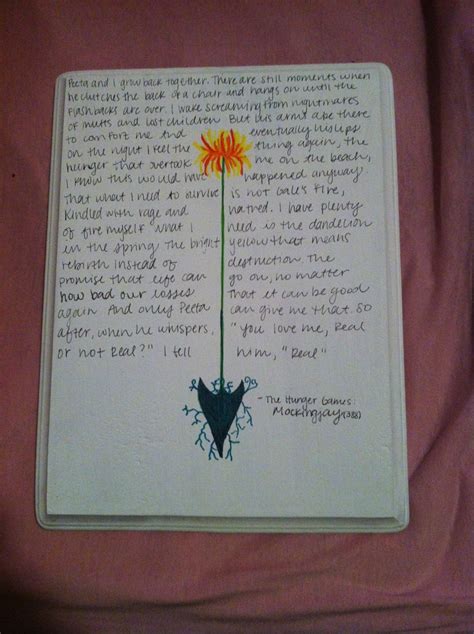 Peeta and I grow back together. There are still moments when
he clutches the back of a chair and hangs on until the
flashbacks are over. I wake screaming from nightmares
of mutts and lost children But his arms are there
to comfort me And eventually his lips
on the night I feel the thing again, the
hunger that overtook me on the beach,
I know this would have happened anyway
that what I need to survive is not Gale's Fire,
Kindled with rage and hatred. I have plenty
of fire myself what I need is the dandelion
in the spring the bright yellow that means
rebirth instead of destruction. The
promise that life can go on, no matter
how bad our losses that it can be good
again And only Peeta can give me that. So
after, when he whispers, "You love me, Real
or not Real?" I tell him, "Real"
- The Hunger Games:
Mockingjay (388)